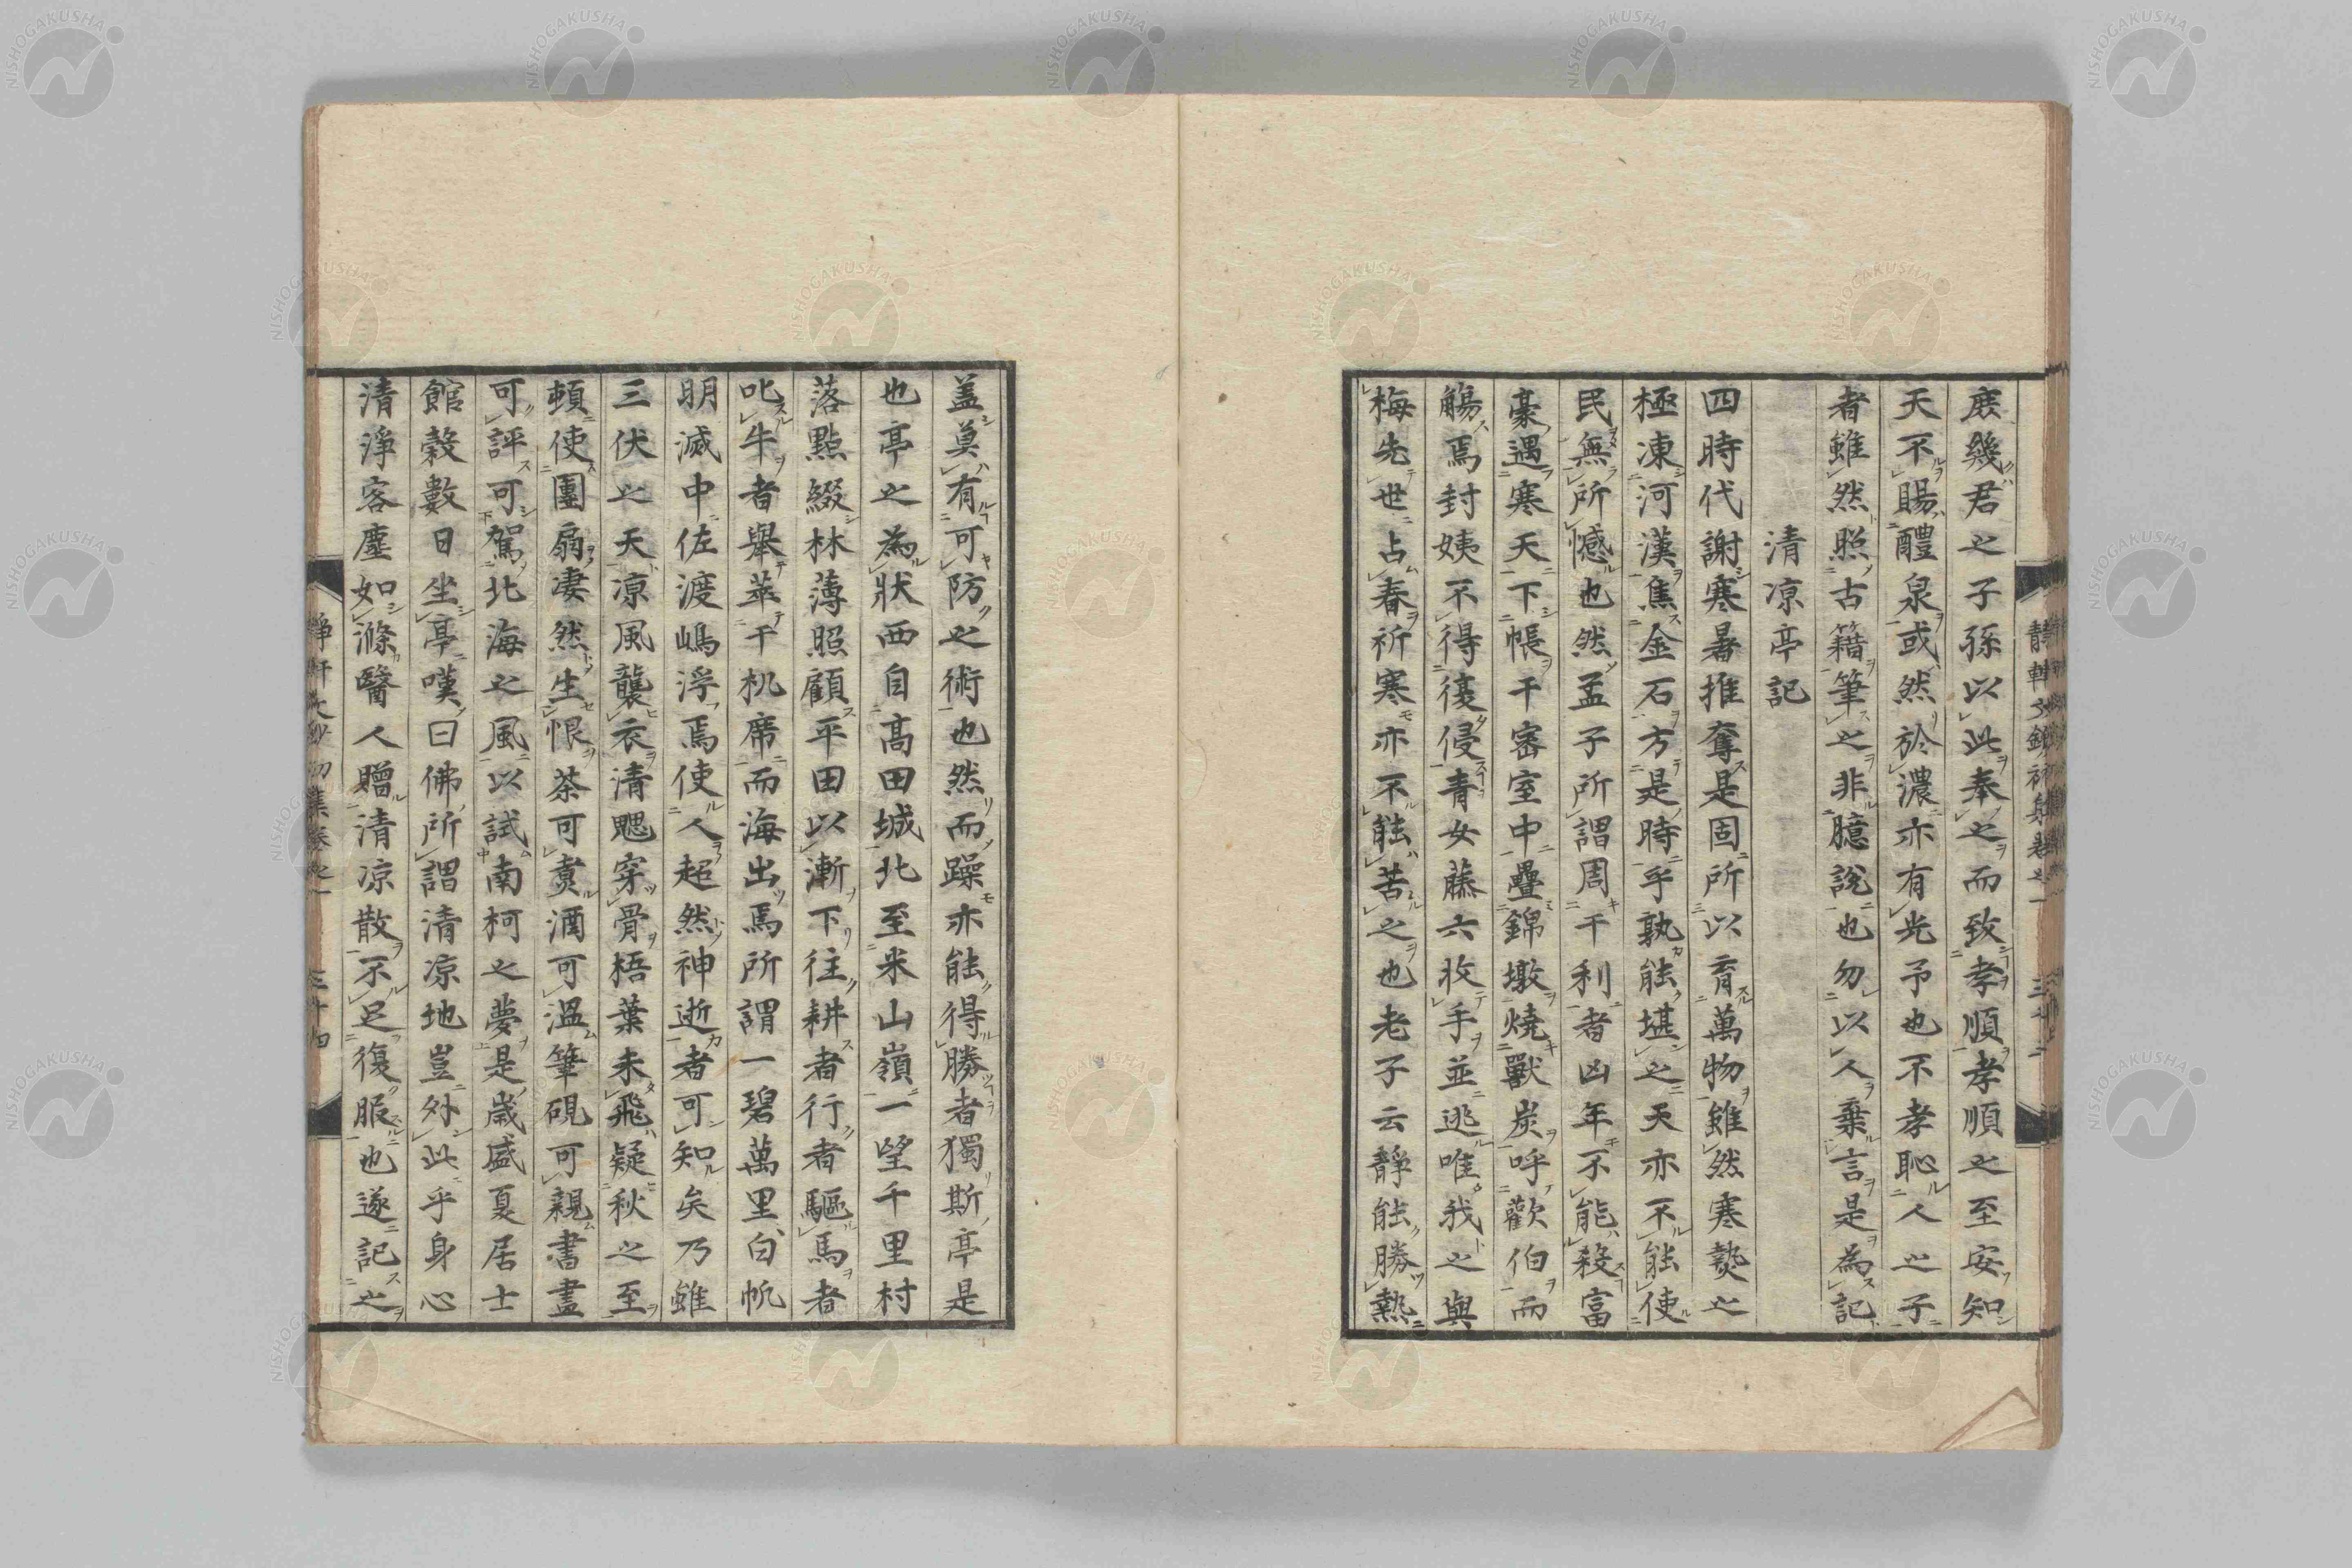 庶幾君之子孫以此奉之而致孝順孝順之至安知
天不賜醴泉或然於濃亦有光予也不孝恥人之子
者雖然照古籍筆之非臆説也勿以人棄言是為記
清凉亭記
四時代謝寒暑推奪是固所以育萬物雖然寒熱之
極凍河漢焦金石方是時乎孰能堪之天亦不能使
民無所憾也然孟子所謂周于利者凶年不能殺富
豪遇寒天下帳于密室中疊錦墩燒獸炭呼歡伯而
觴焉封姨不得復侵青女藤六收手並逃唯我之與
梅先世占春祈寒亦不能苦之也老子云靜能勝熱
蓋奠有可防之術也然而躁亦能得勝者獨斯亭是
也亭之為狀西自高田城北至米山嶺一望千里村
落點綴林薄照顧平田以漸下往耕者行者驅馬者
叱牛者舉萃于机席而海出焉所謂一碧萬里白帆
明滅中佐渡嶋浮焉使人超然神逝者可知矣乃雖
三伏之天凉風襲衣清颸穿骨梧葉未飛疑秋之至
頓使團扇凄然生恨茶可煑酒可温筆硯可親書畫
可評可駕北海之風以試南柯之夢是歲盛夏居士
館穀數日坐亭嘆曰佛所謂清凉地豈外此乎身心
清淨客塵如滌醫人贈清凉散不足復服也遂記之